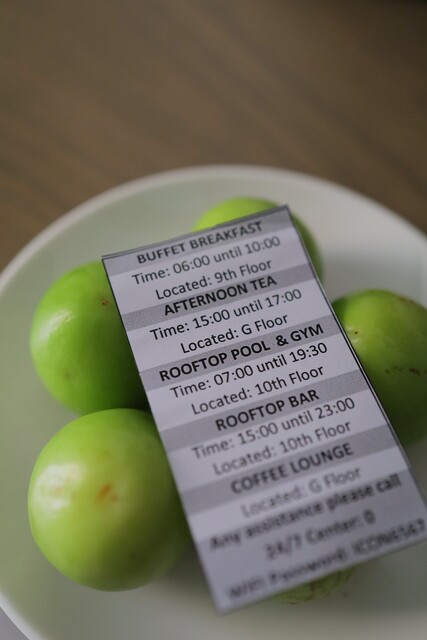 BUFFET BREAKFAST
Time: 06:00 until 10:00
Located: 9th Floor
AFTERNOON TEA
Time: 15:00 until 17:00
Located: G Floor
ROOFTOP POOL & GYM
Time: 07:00 until 19:30
Located: 10th Floor
ROOFTOP BAR
Time: 15:00 until 23:00
Located: 10th Floor
COFFEE LOUNGE
Located: G Floor
Any assistance please call
24/7 Center: 0
Wifi Password: